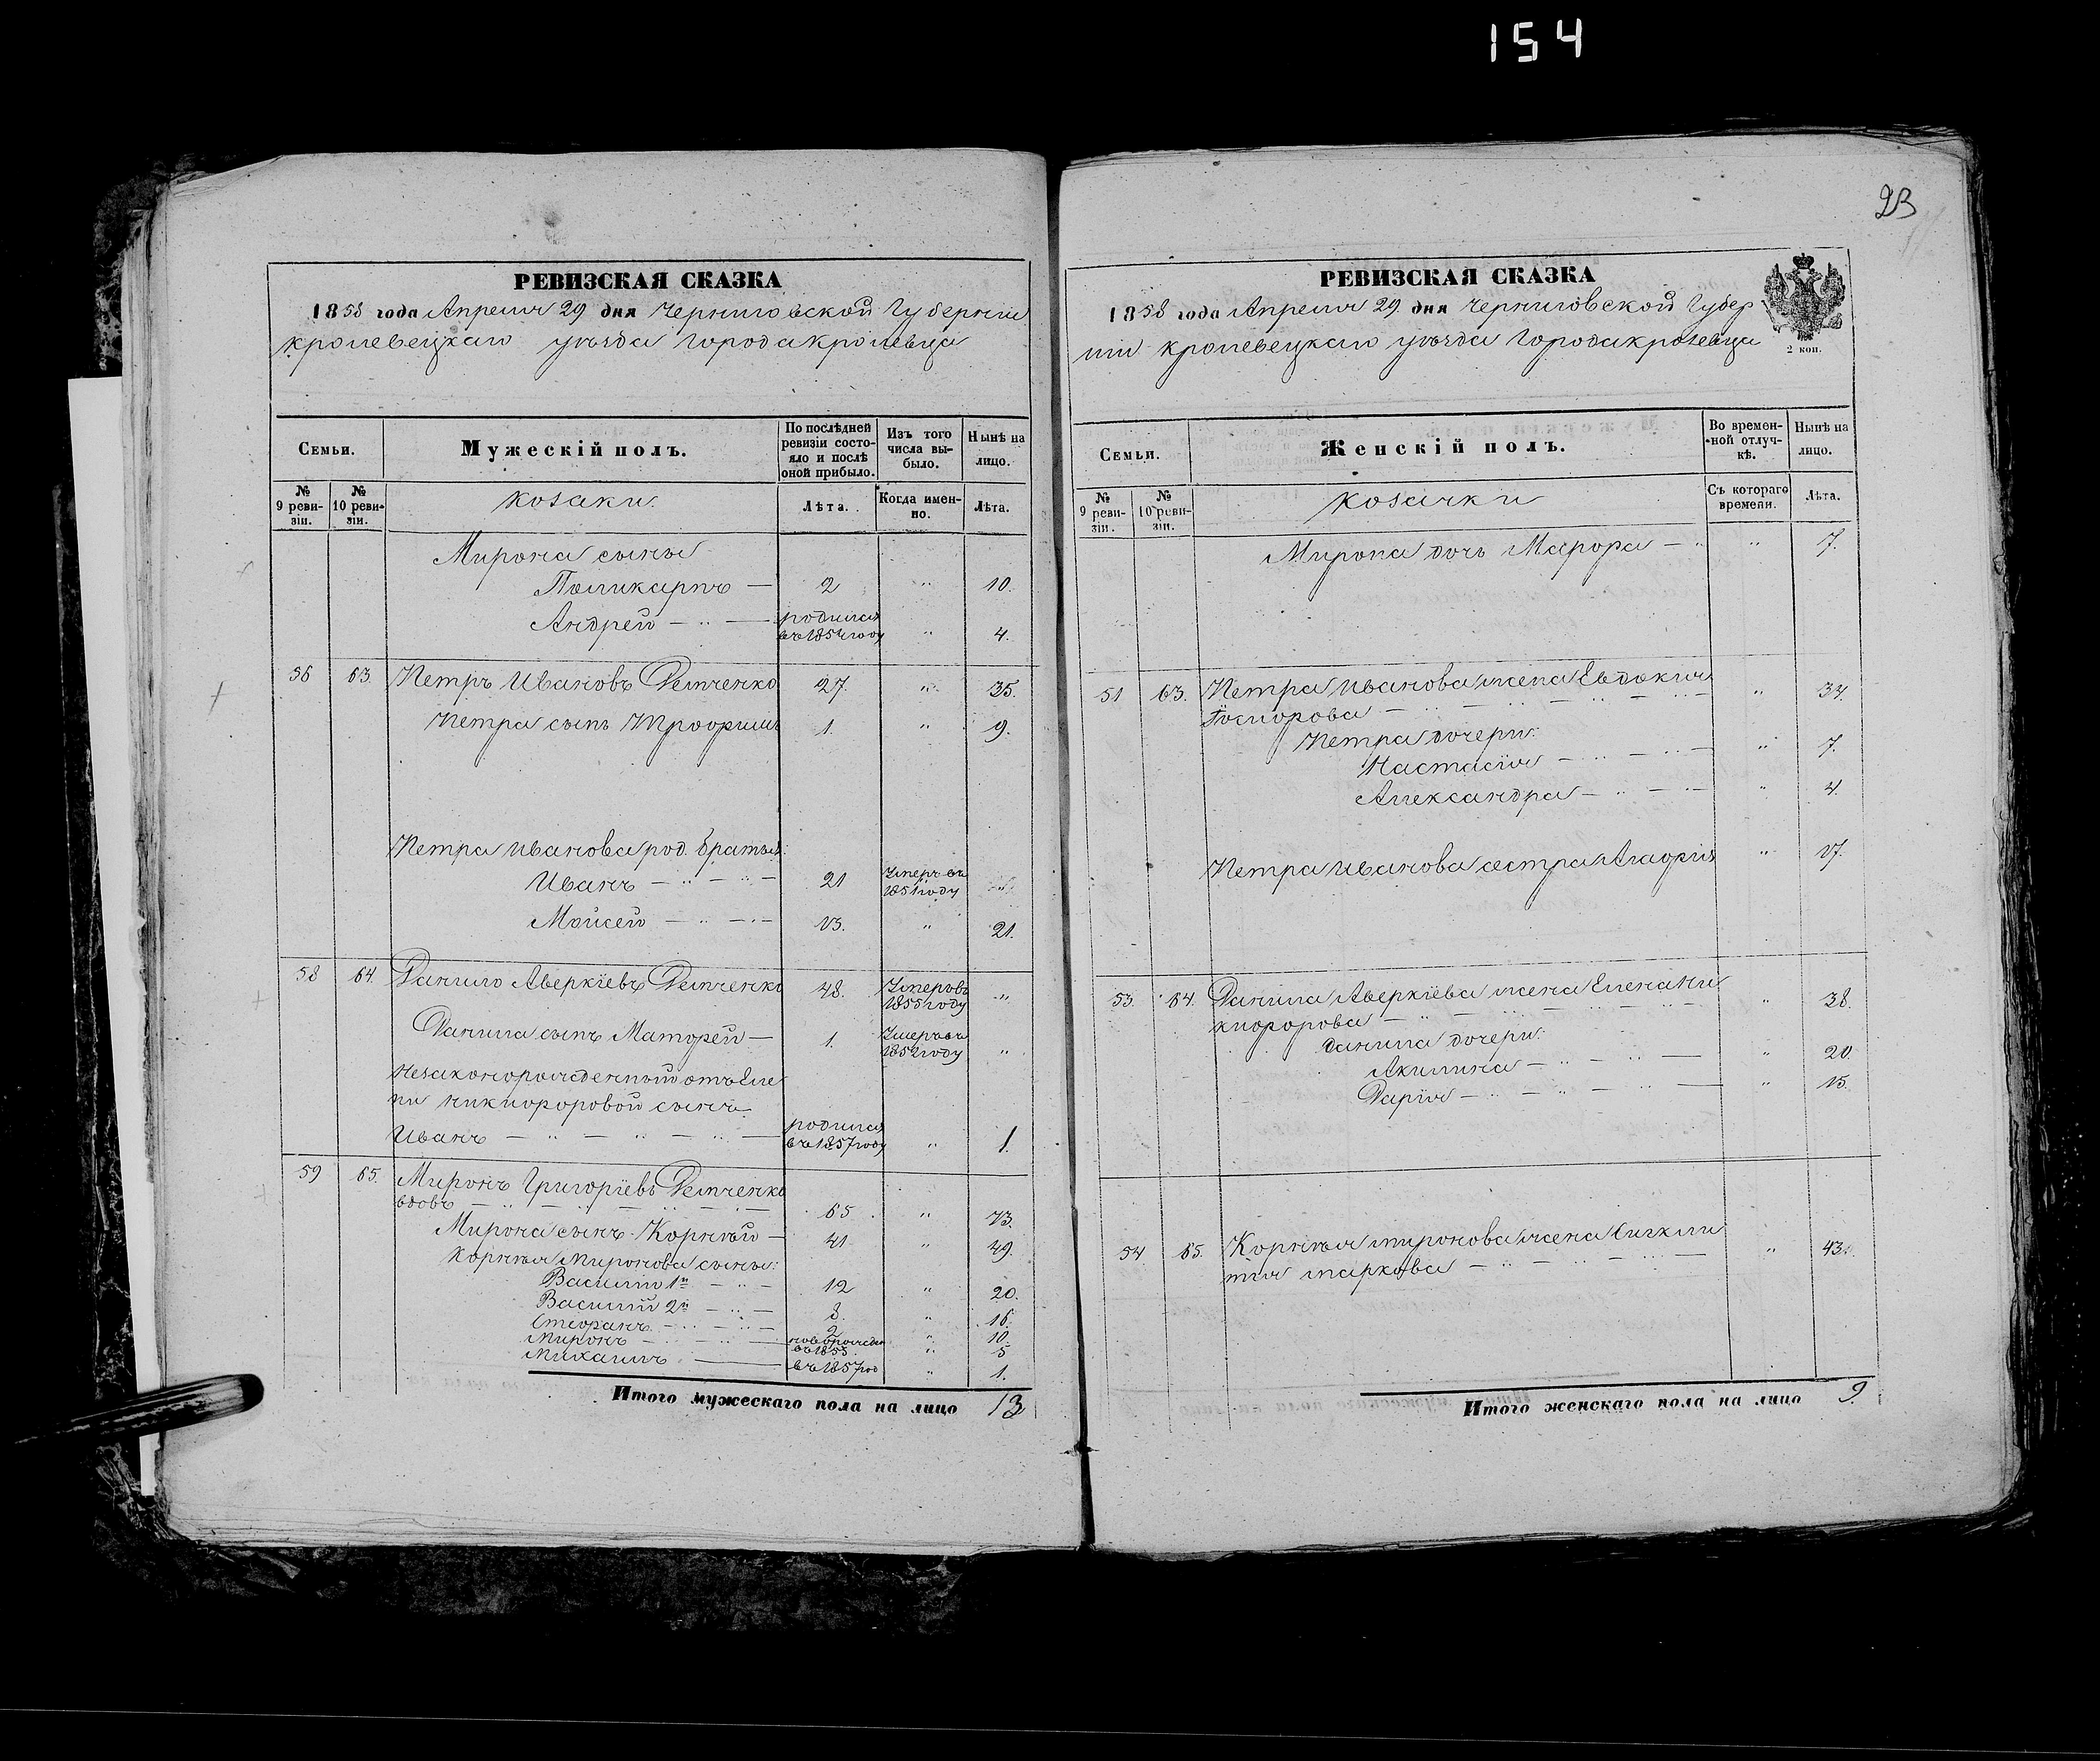 154
РЕВИЗСКАЯ СКАЗКА
1858 года Апреля 29 дня Черниговской Губернии
кролевецкаго уѣзда города кролевца
Семьи.
Мужескій полъ.
По послѣдней ревизіи состояло и послѣ оной прибыло.
Изъ того числа выбыло.
Нынѣ на лицо.
№ 9 ревизіи.
№ 10 ревизіи.
козаки.
Лѣта.
Когда именно.
Лѣта.
Мирона сыны
Поликарпъ — 2 " 10.
Андрей — " — родился въ 1854 году " 4.
56 63. Петръ Ивановъ Демченко 27. " 35.
Петра сынъ Трофимъ 1. " 9.
Петра Иванова род. братья:
Иванъ — " — " — 21 Умеръ въ 1851 году "
Мойсей — " — " — 13. " 21.
58 64. Данило Аверкіевъ Демченко 48. Умеръ въ 1855 году "
Данила сынъ Матфей — 1. Умеръ въ 1852 году "
Незаконорожденный отъ Еле
ни никифоровой сынъ
Иванъ — " — " — " — родился въ 1857 году " 1.
59 65. Миронъ Григоріевъ Демченко
вдовъ — " — " — " — 65 " 73.
Мирона сынъ Корнѣй — 41 " 49.
Корнѣя Миронова сыны:
Василій 1й — " — 12 " 20.
Василій 2й — " — 8. " 16.
Стефанъ — " — " — 2 " 10.
Миронъ — " — " — новорожден въ 1853 " 5
Михаилъ — въ 1857 год " 1.
Итого мужескаго пола на лицо 13
23
РЕВИЗСКАЯ СКАЗКА
1858 года Апреля 29. дня Черниговской Губер
ніи кролевецкаго уѣзда города кролевца
2 коп.
Семьи.
Женскій полъ.
Во временной отлучкѣ.
Нынѣ на лицо.
№ 9 ревизіи.
№ 10 ревизіи.
козачки
Съ котораго времени.
Лѣта.
Мирона дочь Марфа — " " 7.
51 63. Петра Иванова жена Евдокия
— " — " — " — " 34.
Петра дочери:
Настасія — " — " — " 7.
Александра — " — " — " 4.
Петра Иванова сестра Агафія " 17.
53. 64. Данила Аверкіева жена Елена Ни
кифорова — " — " — " — " 38.
Данила дочери:
Акилина — " — " — " 20.
Дарія — " — " — " 15.
54 65. Корнѣя миронова жена
маркова — " — " — " — " 43.
Итого женскаго пола на лицо 9.